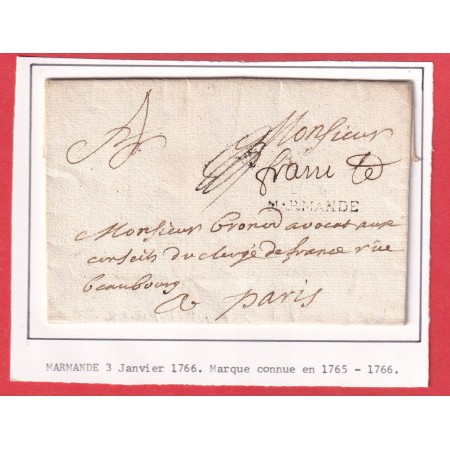 Monsieur
MARMANDE
Monsieur avocat aux
conseils du clergé de france rüe
beaubourg
a paris
MARMANDE 3 Janvier 1766. Marque connue en 1765 - 1766.